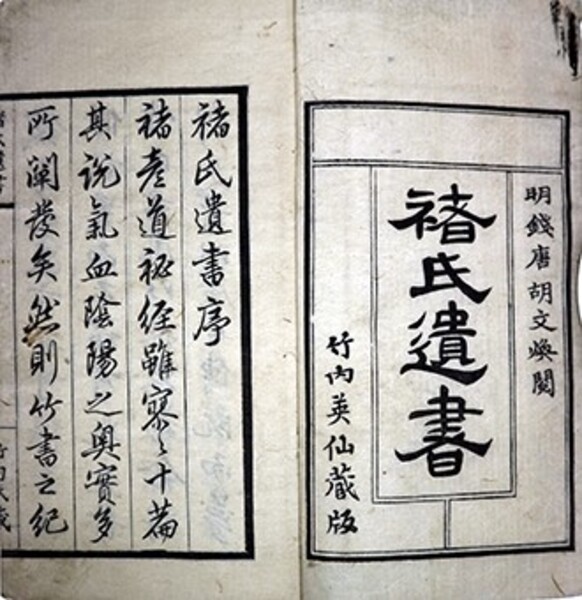 明錢唐胡文煥閱
褚氏遺書
竹內英仙藏版
褚氏遺書序
褚彥道祕經雖寥〻十篇
其說氣血陰陽之奧實多
所闡發矣然則竹書之紀